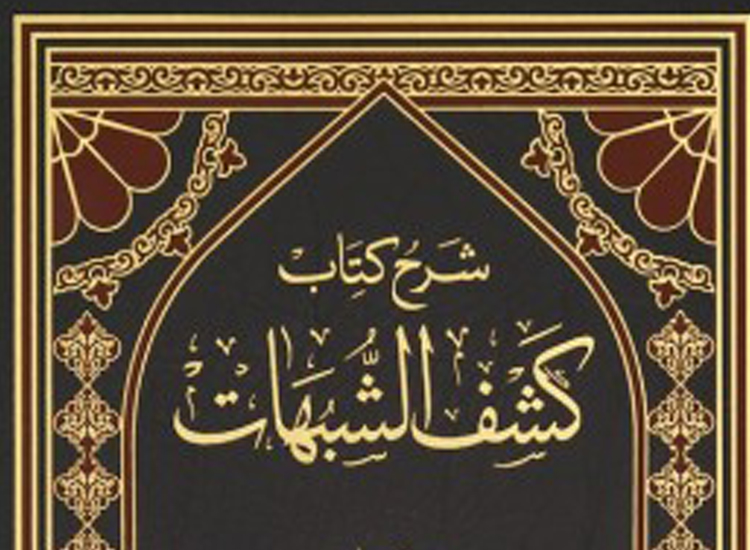 شَرحُ كِتَابْ
كَشف الشُّبهَات